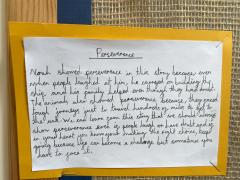 Perseverence
Noah showed perseverence in this story because even
when people laughed at him, he carried on building the
ship and his family helped even though they had doubt.
The animals also showed perseverence because they faced
tough journeys just to travel hundreds of mile to get to
the ark. We can learn from this story that we should always
show perserverance even if people laugh or have doubt and if
in your heart you know your doing the right choice, keep
going because life can become a challenge but sometimes you
have to face it.